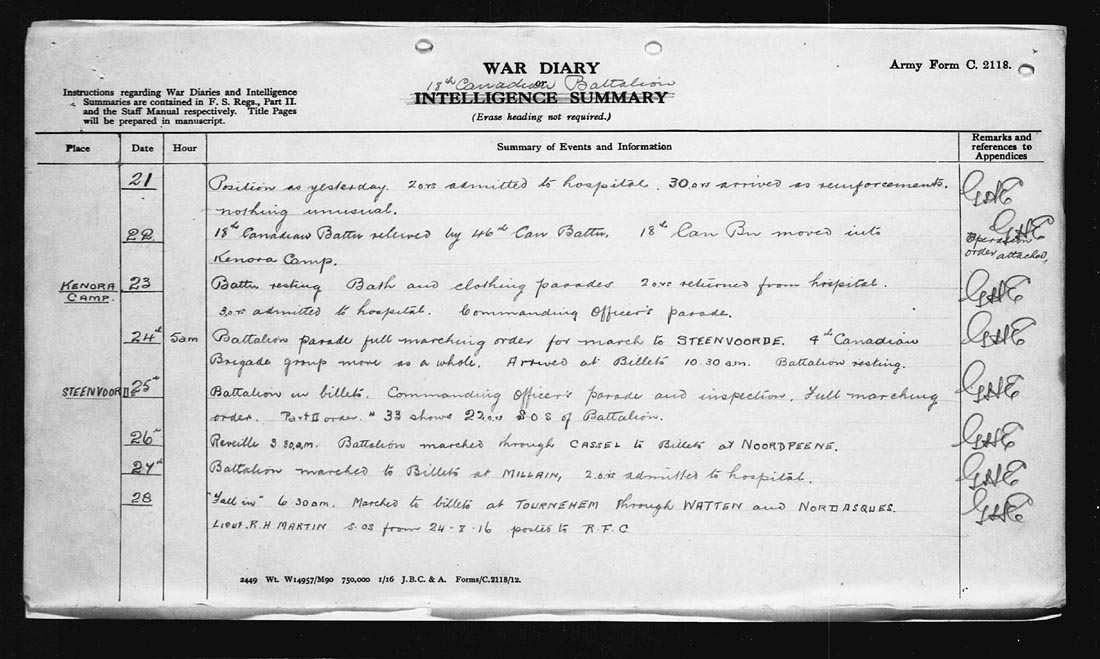 WAR DIARY
18th Canadian Battalion
or
INTELLIGENCE SUMMARY
(Erase heading not required.)
Army Form C. 2118.
Instructions regarding War Diaries and Intelligence
Summaries are contained in F. S. Regs., Part II.
and the Staff Manual respectively. Title Pages
will be prepared in manuscript.
Place Date Hour Summary of Events and Information Remarks and references to Appendices
21 Position as yesterday. 2 ors admitted to hospital. 30 ors arrived as reinforcements.
nothing unusual.
22 18th Canadian Battn relieved by 46th Can Battn. 18th Can Bn moved into Operation order attached.
Kenora Camp.
KENORA CAMP. 23 Battn resting Bath and clothing parades 2 ors returned from hospital.
3 ors admitted to hospital. Commanding Officer's parade.
24th 5am Battalion parade full marching order for march to STEENVOORDE. 4th Canadian
Brigade group move as a whole. Arrived at Billets 10.30 am. Battalion resting.
STEENVOORDE 25th Battalion in billets. Commanding Officer's parade and inspection. Full marching
order. Part II order. " 33 shows 22 ors S O S of Battalion.
26th Reveille 3 30am. Battalion marched through CASSEL to Billets at NOORDPEENE.
27th Battalion marched to Billets at MILLAIN, 2 ors admitted to hospital.
28 "Fall in" 6.30am. Marched to billets at TOURNEHEM through WATTEN and NORDASQUES.
LIEUT. R.H MARTIN S.OS from 24-8-16 posted to R.F.C
2449 Wt. W14957/M90 750,000 1/16 J.B.C. & A. Forms/C.2118/12.